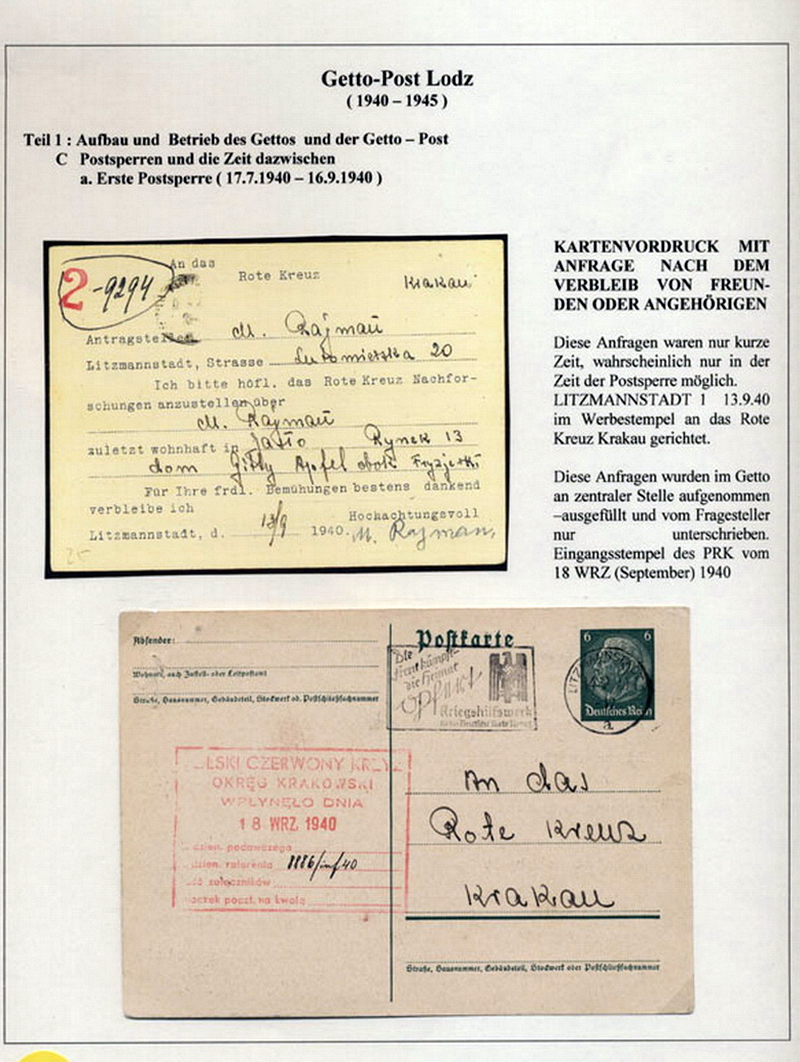 Getto-Post Lodz
( 1940 – 1945 )
Teil 1 : Aufbau und Betrieb des Gettos und der Getto – Post
C Postsperren und die Zeit dazwischen
a. Erste Postsperre ( 17.7.1940 – 16.9.1940 )
2 -9294
An das
Rote Kreuz
Krakau
Antragsteller M. Rajmau
Litzmannstadt, Strasse Lutomierska 20
Ich bitte höfl. das Rote Kreuz Nachfor-
schungen anzustellen über
M. Rajmau
zuletzt wohnhaft in Jasło Rynek 13
dom Gitly Apfel obok
Für Ihre frdl. Bemühungen bestens dankend
verbleibe ich
Hochachtungsvoll
Litzmannstadt, d. 13/9 1940. M. Rajman
KARTENVORDRUCK MIT
ANFRAGE NACH DEM
VERBLEIB VON FREUN-
DEN ODER ANGEHÖRIGEN
Diese Anfragen waren nur kurze
Zeit, wahrscheinlich nur in der
Zeit der Postsperre möglich.
LITZMANNSTADT 1 13.9.40
im Werbestempel an das Rote
Kreuz Krakau gerichtet.
Diese Anfragen wurden im Getto
an zentraler Stelle aufgenommen
–ausgefüllt und vom Fragesteller
nur unterschrieben.
Eingangsstempel des PRK vom
18 WRZ (September) 1940
Absender:
Wohnort, auch Zustell- oder Leitpostamt
Straße, Hausnummer, Gebäudeteil, Stockwerk od. Postschließfachnummer
Postkarte
Die
Front kämpft-
die Heimat
opfert
Kriegshilfswerk
6 6
Deutsches Reich
LSKI CZERWONY KRZYŻ
OKRĘG KRAKOWSKI
WPŁYNĘŁO DNIA
18 WRZ 1940
dzien. podawczego
dzien. referenta 8886/inf/40
załączników
poczt. na kwotę
An das
Rote Kreuz
Krakau
Straße, Hausnummer, Gebäudeteil, Stockwerk oder Postschließfachnummer